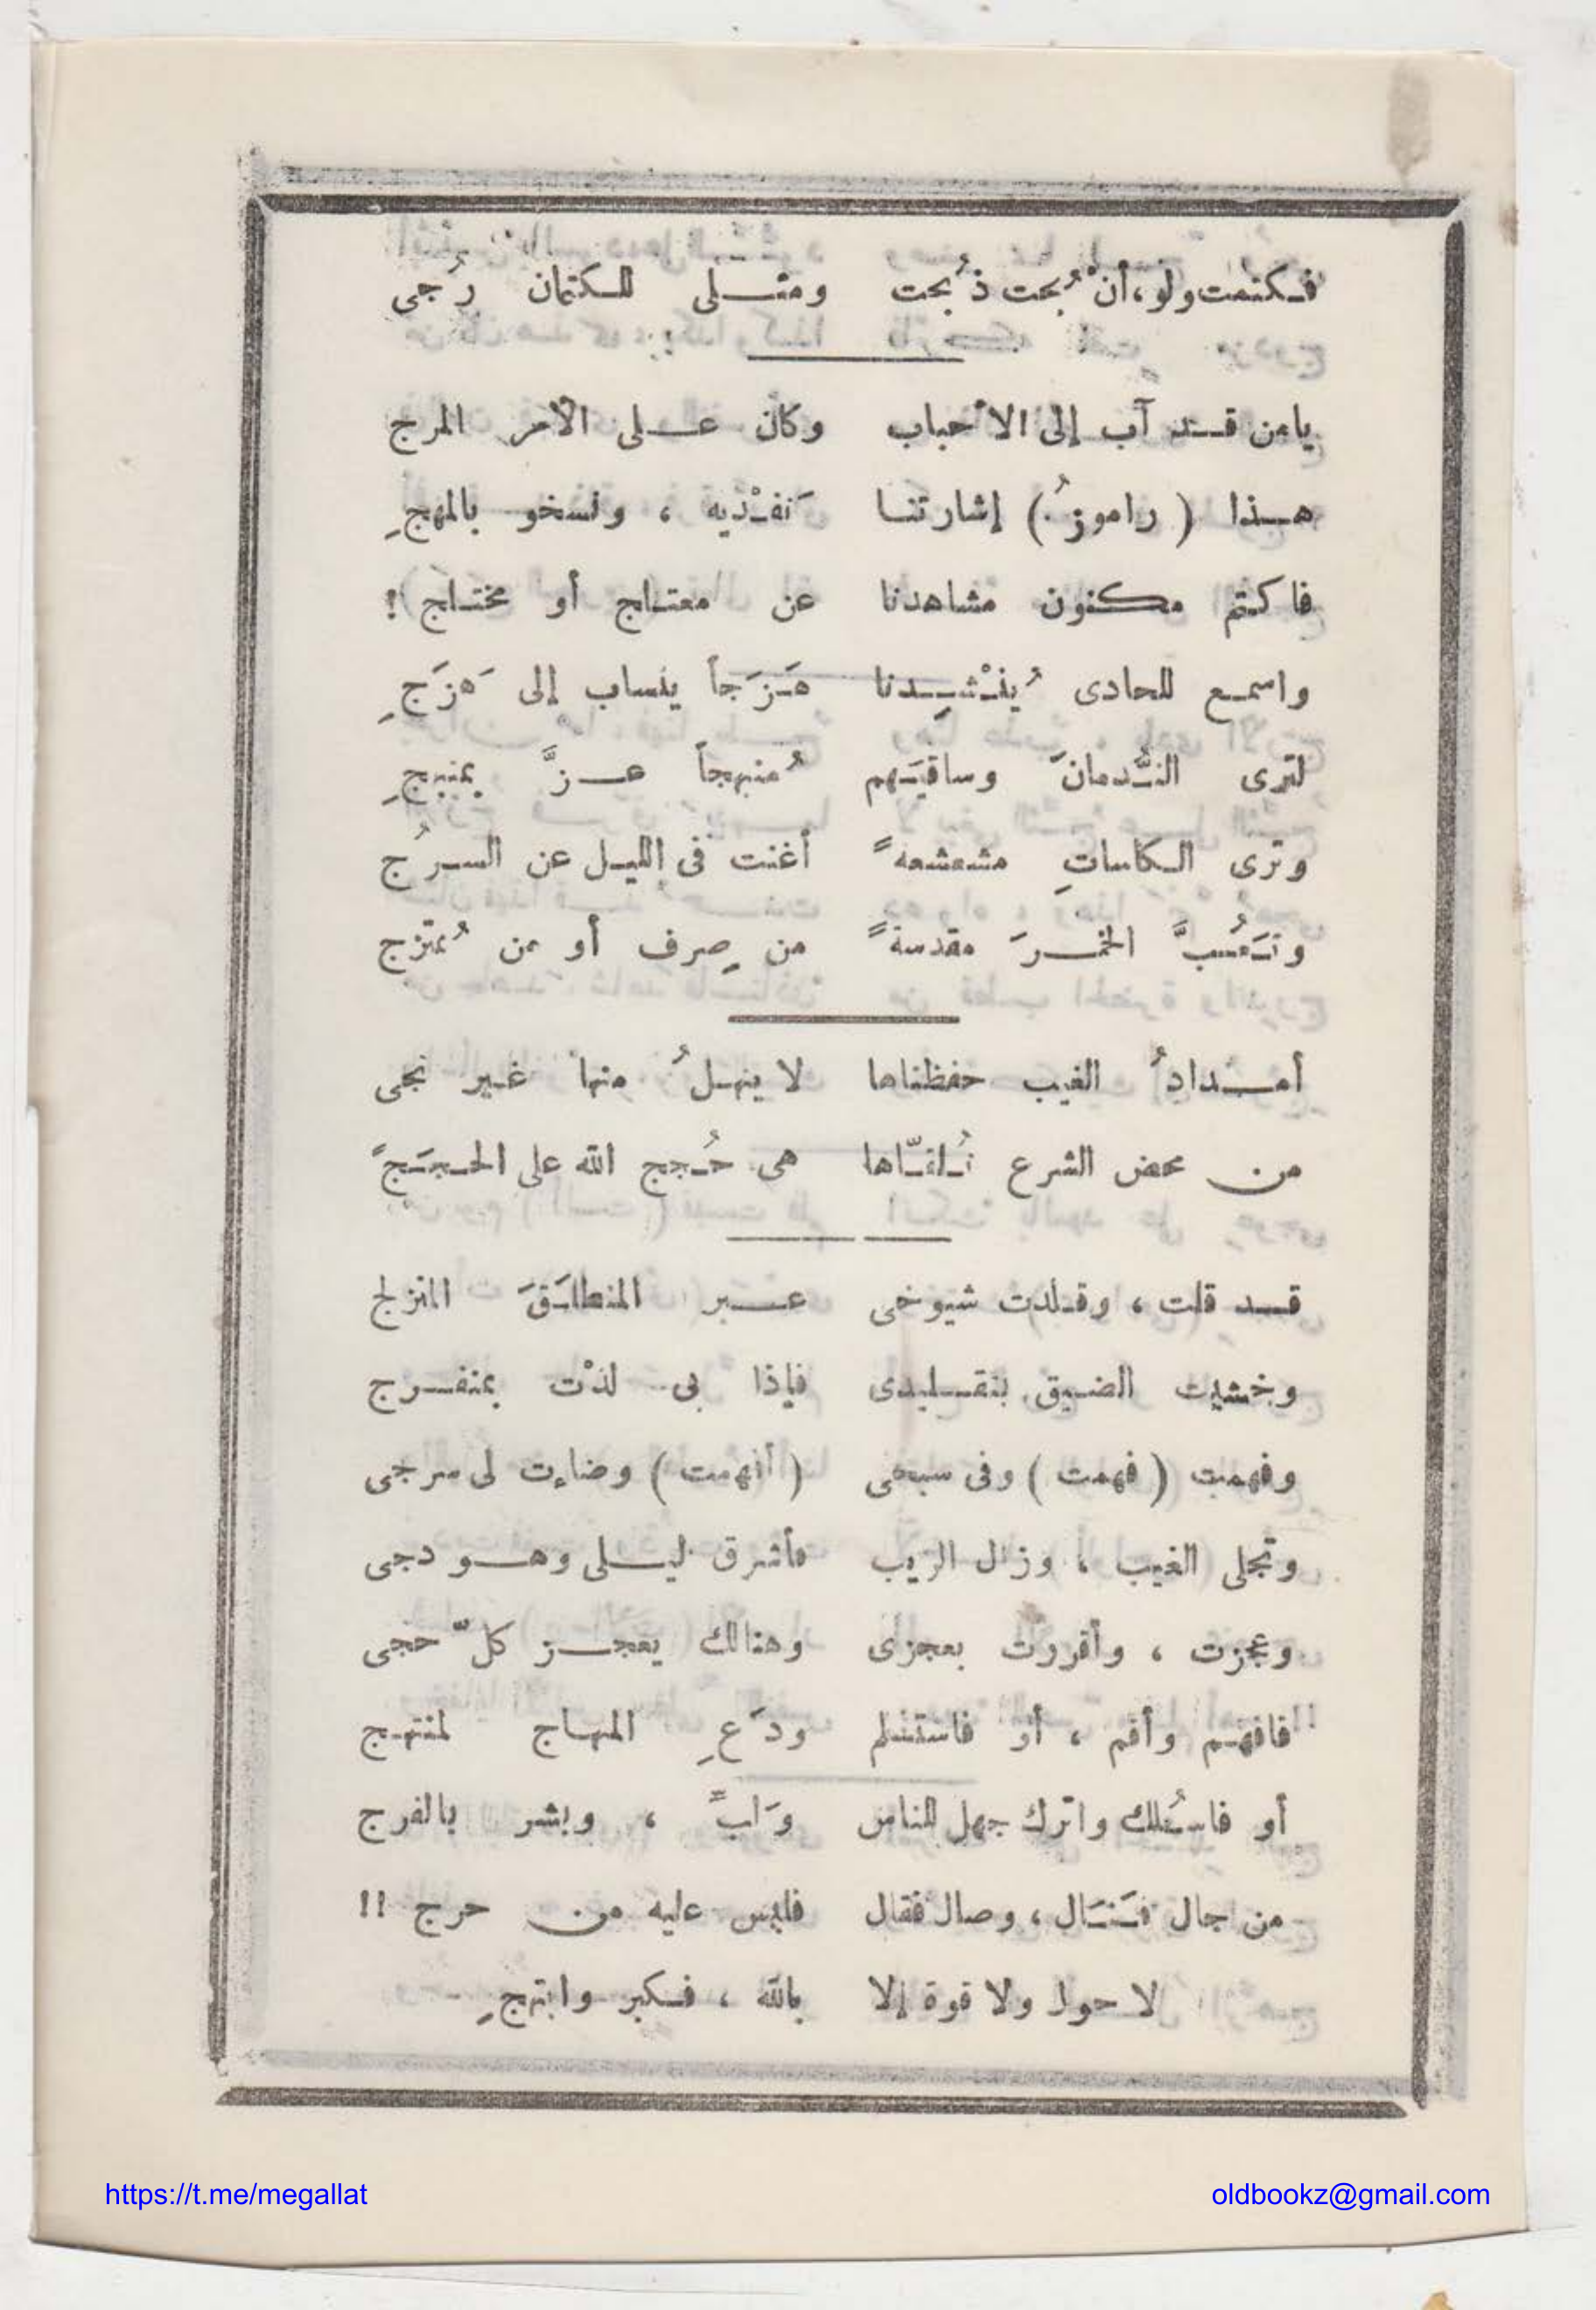 فـكتمت ولو، أنْ بُحت ذُبحت ومثـلى للـكتمان رُجى
يامن قـد آب إلى الأحباب وكان عـلى الأمر المرج
هـذا ( راموزُ ) إشارتنـا نَفـْديه ، ونسخو بالمهجِ
فاكتم مكنون مشاهدنا عن معتـاج أو محتـاج !
واسمـع للحادى يُنـْشِـدنا هَـزَجاً ينساب إلى هَزَجِ
لترى النُّـدمانَ وساقيَـهم مُنبهجاً عـزَّ بمنبهجِ
وترى الـكاساتِ مشعشعةً أغنت فى الليـل عن السـرُج
وتَـعُـبَّ الخمـرَ مقدسةً من صِرف أو من مُمتزج
أمـدادُ الغيب حفظناها لا ينهـلُ منها غـير نجى
من محض الشرع نُـلقـّاها هى حُـجج الله على الحـجـَجِ
قـد قلت ، وقـلدت شيوخى عـبر المنطلـَقَ المنزلج
وخشيت الضـيق بتقـليدى فإذا بى لذْت بمنفـرج
وفهمت ( فهمت ) وفى سمعى ( أفهمت ) وضاءت لى سرجى
وتجلى الغيب ، وزال الريب فأشرق ليـلى وهـو دجى
وعجزت ، وأقررت بعجزى وهنالك يعجـز كلّ حجى
فافهـم وأقم ، أو فاستسلم ودَعِ المنهـاج لمنتهـج
أو فاسْـلك واترك جهل الناس وَابـ ، وبشر بالفرج
من جال فـَنـَال ، وصال فقال فليس عليه من حرج !!
لا حول ولا قوة إلا بالله ، فـكبر وابتهجِ
https://t.me/megallat oldbookz@gmail.com